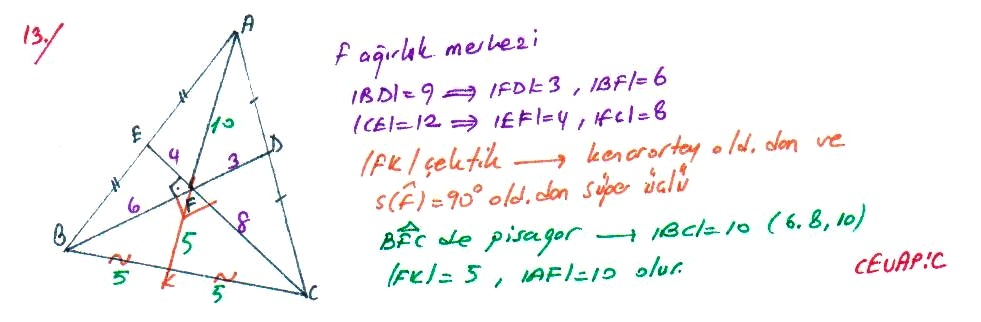 13./
A
E
D
F
B
K
C
10
4
3
6
8
5
5
5
F ağırlık merkezi
|BD|=9 ⟹ |FD|=3 , |BF|=6
|CE|=12 ⟹ |EF|=4 , |FC|=8
|FK| çektik ⟶ kenarortay old. dan ve
s(F̂)=90° old. dan süper üçlü
BFC de pisagor ⟶ |BC|=10 (6.8,10)
|FK|=5 , |AF|=10 olur.
CEVAP:C